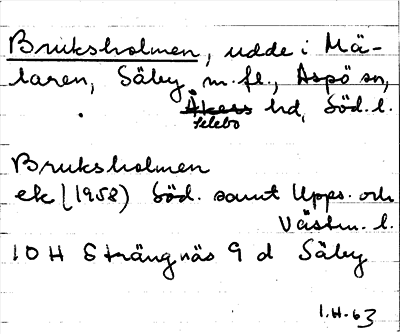 Bruksholmen, udde i Mä-
laren, Säby m.fl., Aspö sn,
Åkers hd, Söd. l.
Selebo
Bruksholmen
ek (1958) Söd. samt Upps. och
Västm. l.
10 H Strängnäs 9 d Säby
I.H.63